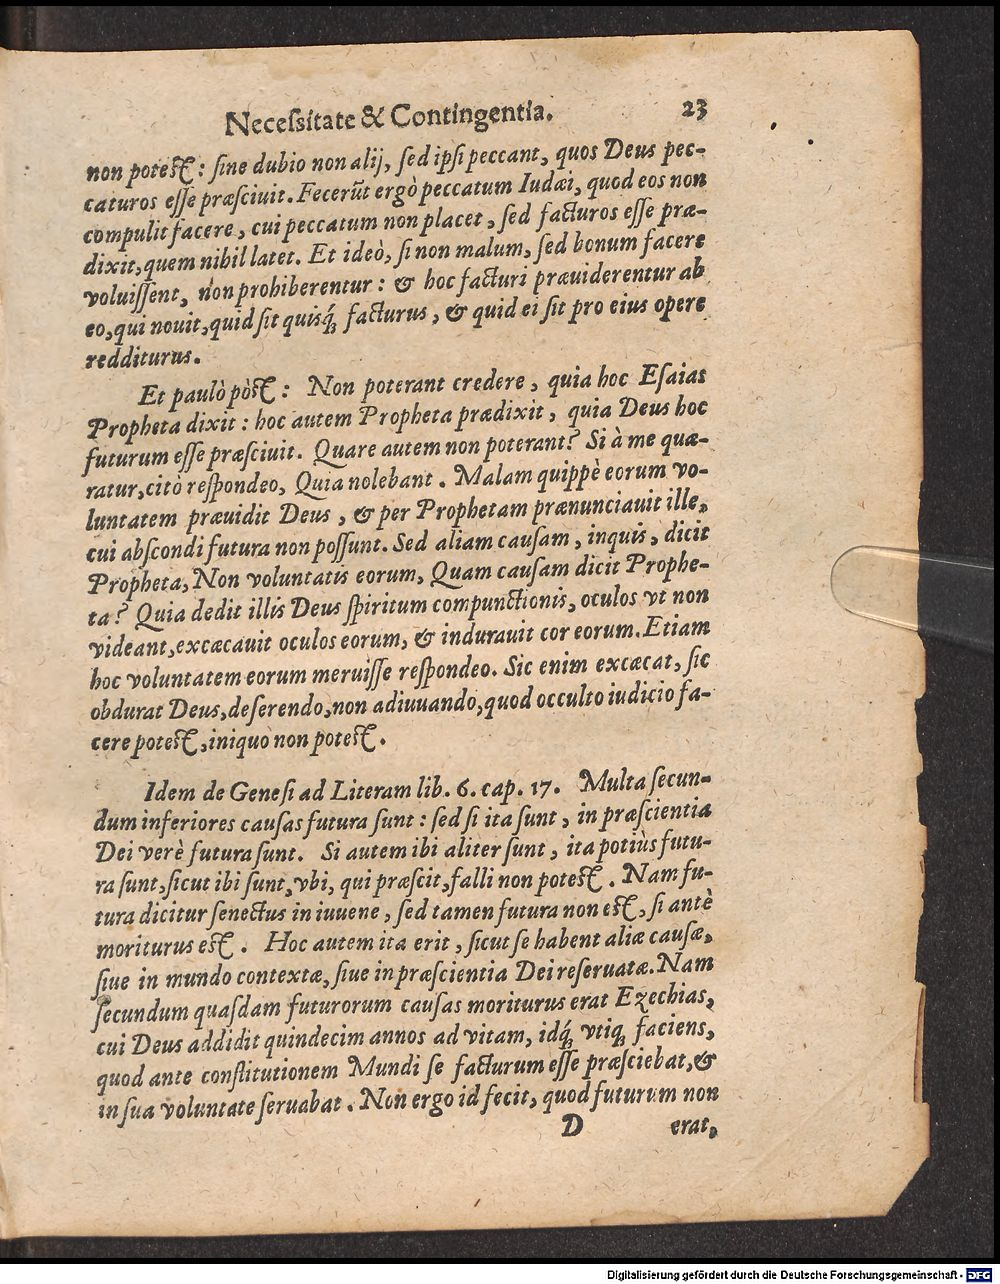 Neceſsitate & Contingentia. 23
non poteſt: ſine dubio non alij, ſed ipſi peccant, quos Deus pec-
caturos eſſe præſciuit. Fecerũt ergò peccatum Iudæi, quod eos non
compulit facere, cui peccatum non placet, ſed facturos eſſe præ-
dixit, quem nihil latet. Et ideò, ſi non malum, ſed bonum facere
voluiſſent, non prohiberentur: & hoc facturi præuiderentur ab
eo, qui nouit, quid ſit quisq́; facturus, & quid ei ſit pro eius opere
redditurus.
Et paulò pòſt: Non poterant credere, quia hoc Eſaias
Propheta dixit: hoc autem Propheta prædixit, quia Deus hoc
futurum eſſe præſciuit. Quare autem non poterant? Si à me quæ-
ratur, citò reſpondeo, Quia nolebant. Malam quippè eorum vo-
luntatem præuidit Deus, & per Prophetam prænunciauit ille,
cui abſcondi futura non poſſunt. Sed aliam cauſam, inquis, dicit
Propheta, Non voluntatis eorum, Quam cauſam dicit Prophe-
ta? Quia dedit illis Deus ſpiritum compunctionis, oculos vt non
videant, excæcauit oculos eorum, & indurauit cor eorum. Etiam
hoc voluntatem eorum meruiſſe reſpondeo. Sic enim excæcat, ſic
obdurat Deus, deſerendo, non adiuuando, quod occulto iudicio fa-
cere poteſt, iniquo non poteſt.
Idem de Geneſi ad Literam lib. 6. cap. 17. Multa ſecun-
dum inferiores cauſas futura ſunt: ſed ſi ita ſunt, in præſcientia
Dei verè futura ſunt. Si autem ibi aliter ſunt, ita potiùs futu-
ra ſunt, ſicut ibi ſunt, vbi, qui præſcit, falli non poteſt. Nam fu-
tura dicitur ſenectus in iuuene, ſed tamen futura non eſt, ſi antè
moriturus eſt. Hoc autem ita erit, ſicut ſe habent aliæ cauſæ,
ſiue in mundo contextæ, ſiue in præſcientia Dei reſeruatæ. Nam
ſecundum quaſdam futurorum cauſas moriturus erat Ezechias,
cui Deus addidit quindecim annos ad vitam, idq́; vtiq; faciens,
quod ante conſtitutionem Mundi ſe facturum eſſe præſciebat, &
in ſua voluntate ſeruabat. Non ergo id fecit, quod futurum non
D erat,
Digitalisierung gefördert durch die Deutsche Forschungsgemeinschaft - DFG